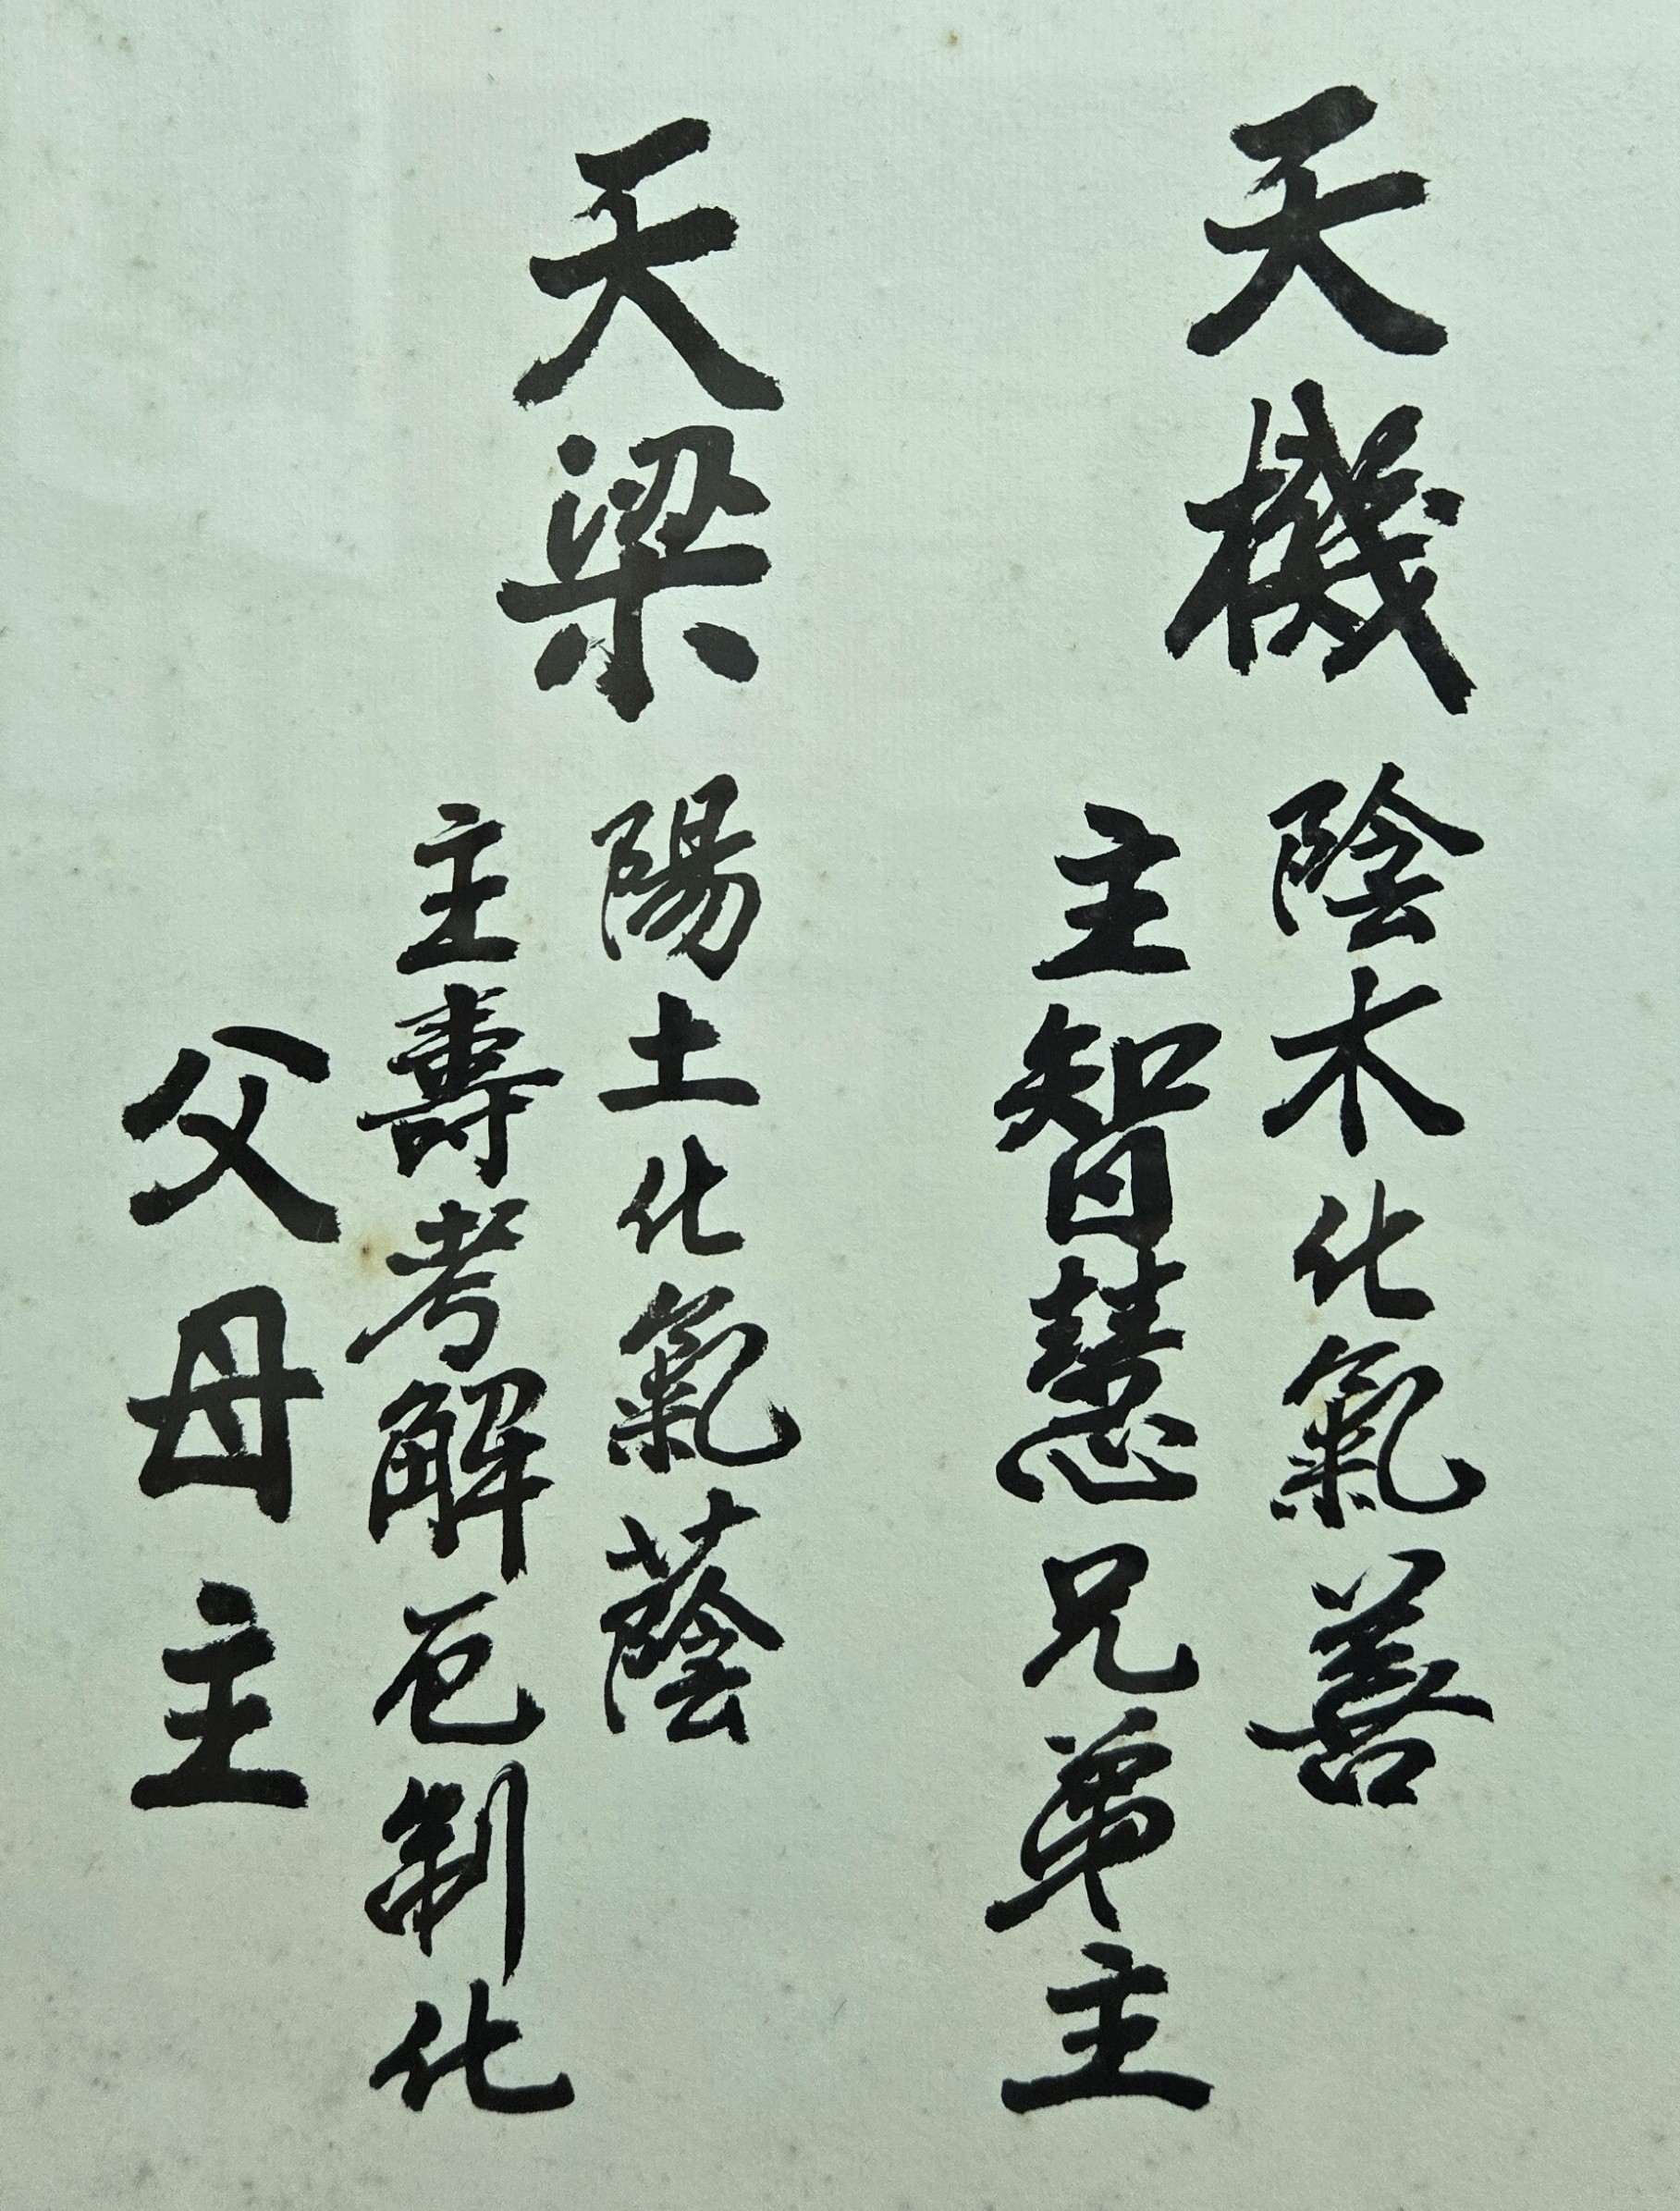 天機
陰木化氣善
主智慧兄弟主
天梁
陽土化氣蔭
主壽考解厄制化
父母主